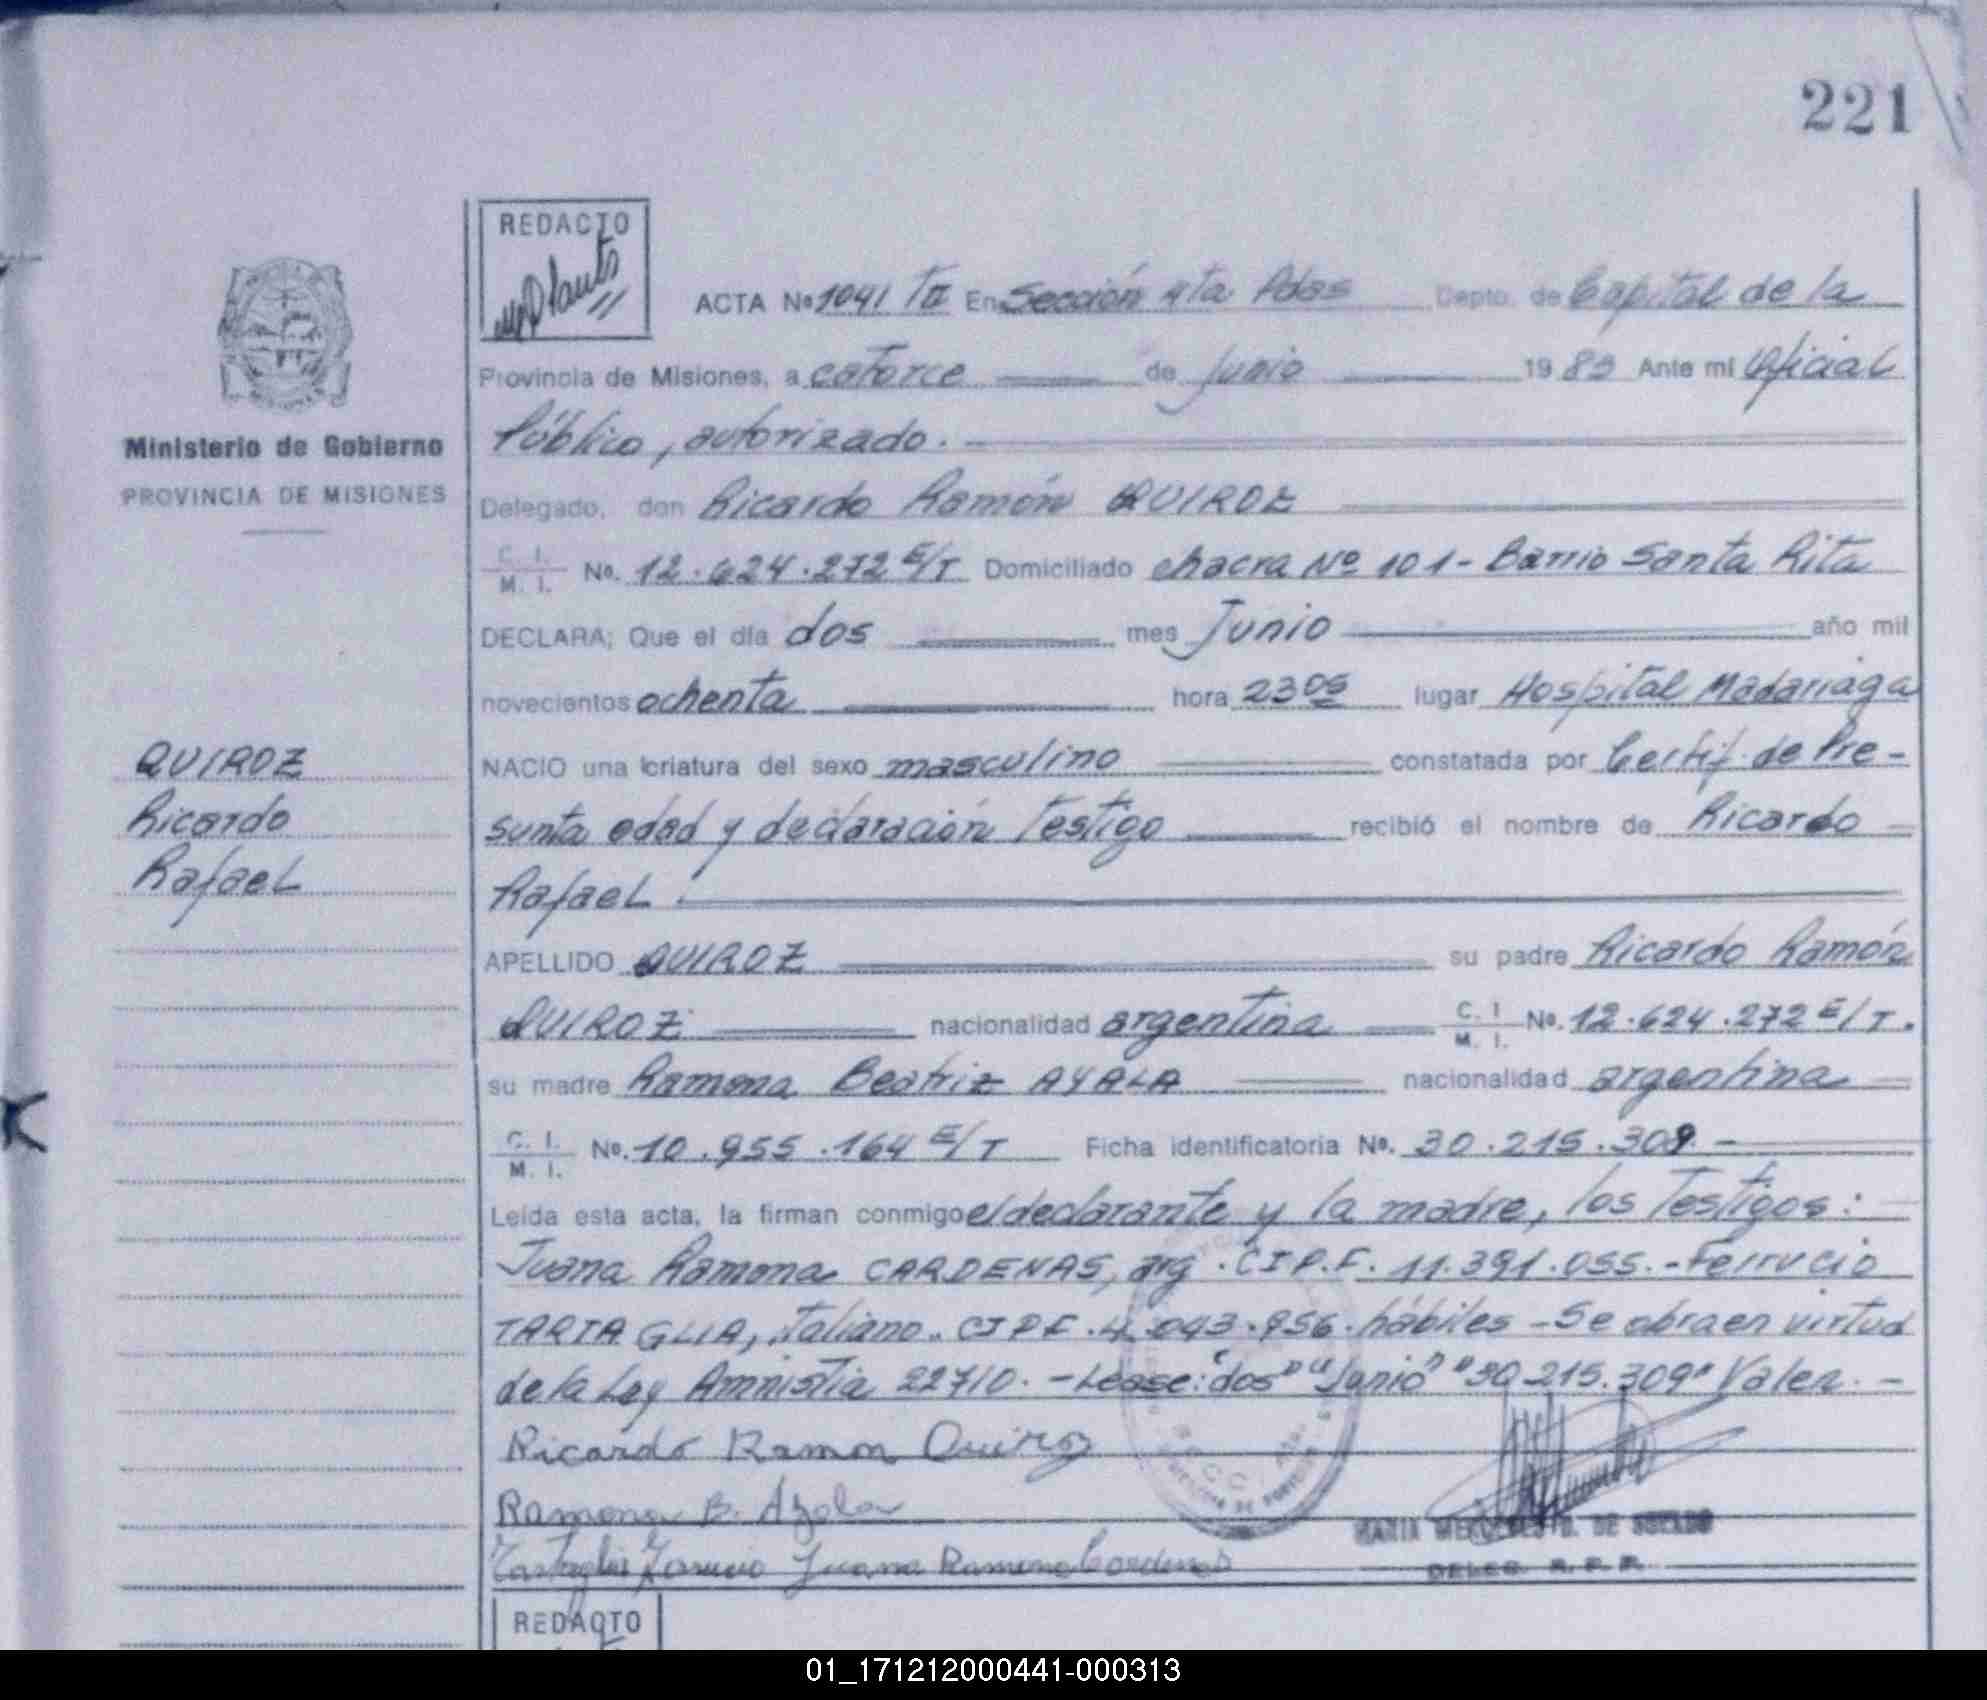 221
REDACTO
ACTA No 1041 TII En Sección 4ta Pdas Depto. de Capital de la
Provincia de Misiones, a catorce de Junio 1983 Ante mi Oficial
Público, autorizado.
Ministerio de Gobierno
PROVINCIA DE MISIONES
Delegado, don Ricardo Ramón QUIROZ
C. I.
M. I. No. 12.624.272 E/T Domiciliado chacra Nº 101 - Barrio Santa Rita
DECLARA; Que el día dos mes Junio año mil
novecientos ochenta hora 23 05 lugar Hospital Madariaga
QUIROZ
Ricardo
Rafael
NACIO una criatura del sexo masculino constatada por Certif. de Pre-
sunta edad y declaración Testigo recibió el nombre de Ricardo
Rafael.
APELLIDO QUIROZ su padre Ricardo Ramón
QUIROZ nacionalidad argentina C. I. M. I. No. 12.624.272 E/T.
su madre Ramona Beatriz AYALA nacionalidad argentina
C. I.
M. I. No. 10.955.164 E/T Ficha identificatoria No. 30.215.309. -
Leída esta acta, la firman conmigo el declarante y la madre, los Testigos:
Juana Ramona CARDENAS, arg. CIPF. 11.391.055. - Ferrucio
TARTAGLIA, Italiano. CIPF. 4.043.956. hábiles - Se obra en virtud
de la Ley Amnistia 22710. - Lease: "dos" "Junio" "30.215.309" Valen. -
Ricardo Ramon Quiroz
Ramona B. Ayala
Tartaglia Ferrucio Juana Ramona Cardenas
DELEG. R. P. P.
REDACTO
01_171212000441-000313